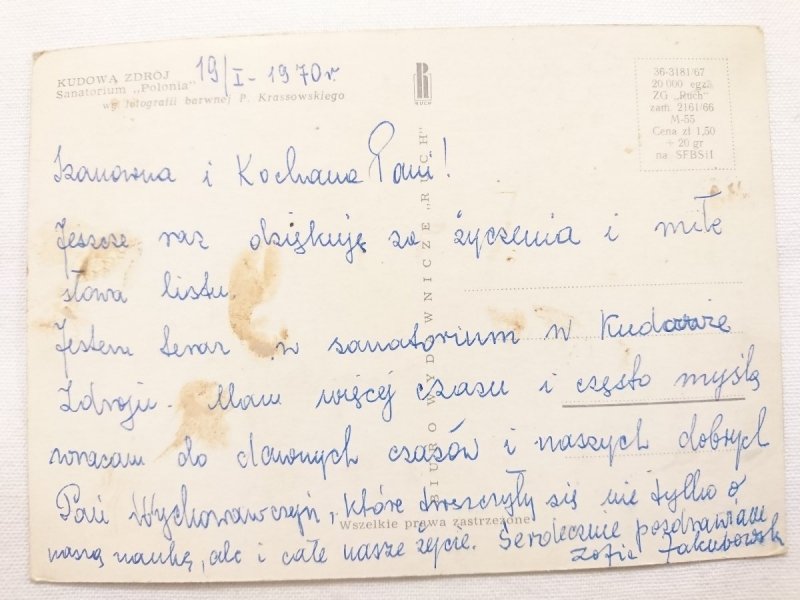 KUDOWA ZDRÓJ
Sanatorium „Polonia"
wg fotografii barwnej P. Krassowskiego
19/I-1970r
RUCH
36-3181/67
20 000 egz.
ZG „Ruch"
zam. 2161/66
M-55
Cena zł 1,50
+ 20 gr
na SFBSiI
BIURO WYDAWNICZE „RUCH"
Szanowna i Kochana Pani!
Jeszcze raz dziękuję za życzenia i miłe
słowa listu.
Jestem teraz w sanatorium w Kudowie
Zdroju. Mam więcej czasu i często myślą
wracam do dawnych czasów i naszych dobrych
Pań Wychowawczyń, które troszczyły się nie tylko o
naszą naukę, ale i całe nasze życie. Serdecznie pozdrawiam
Zofia Jakubowska
Wszelkie prawa zastrzeżone